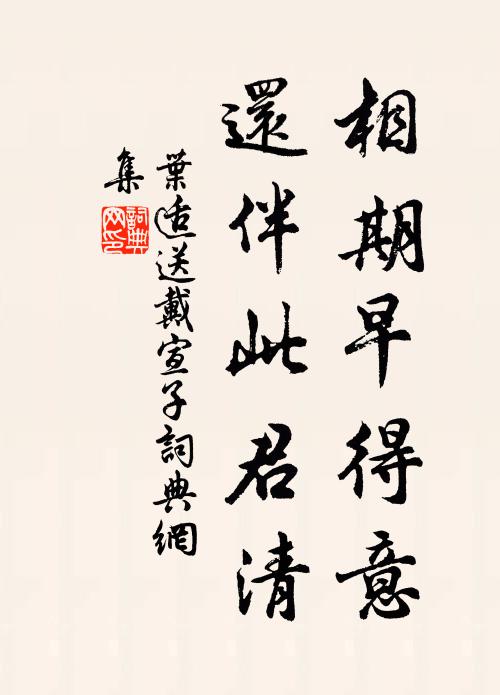 相期早得意
還伴此君清
葉适送戴宣子詞典網
集
詞典網印